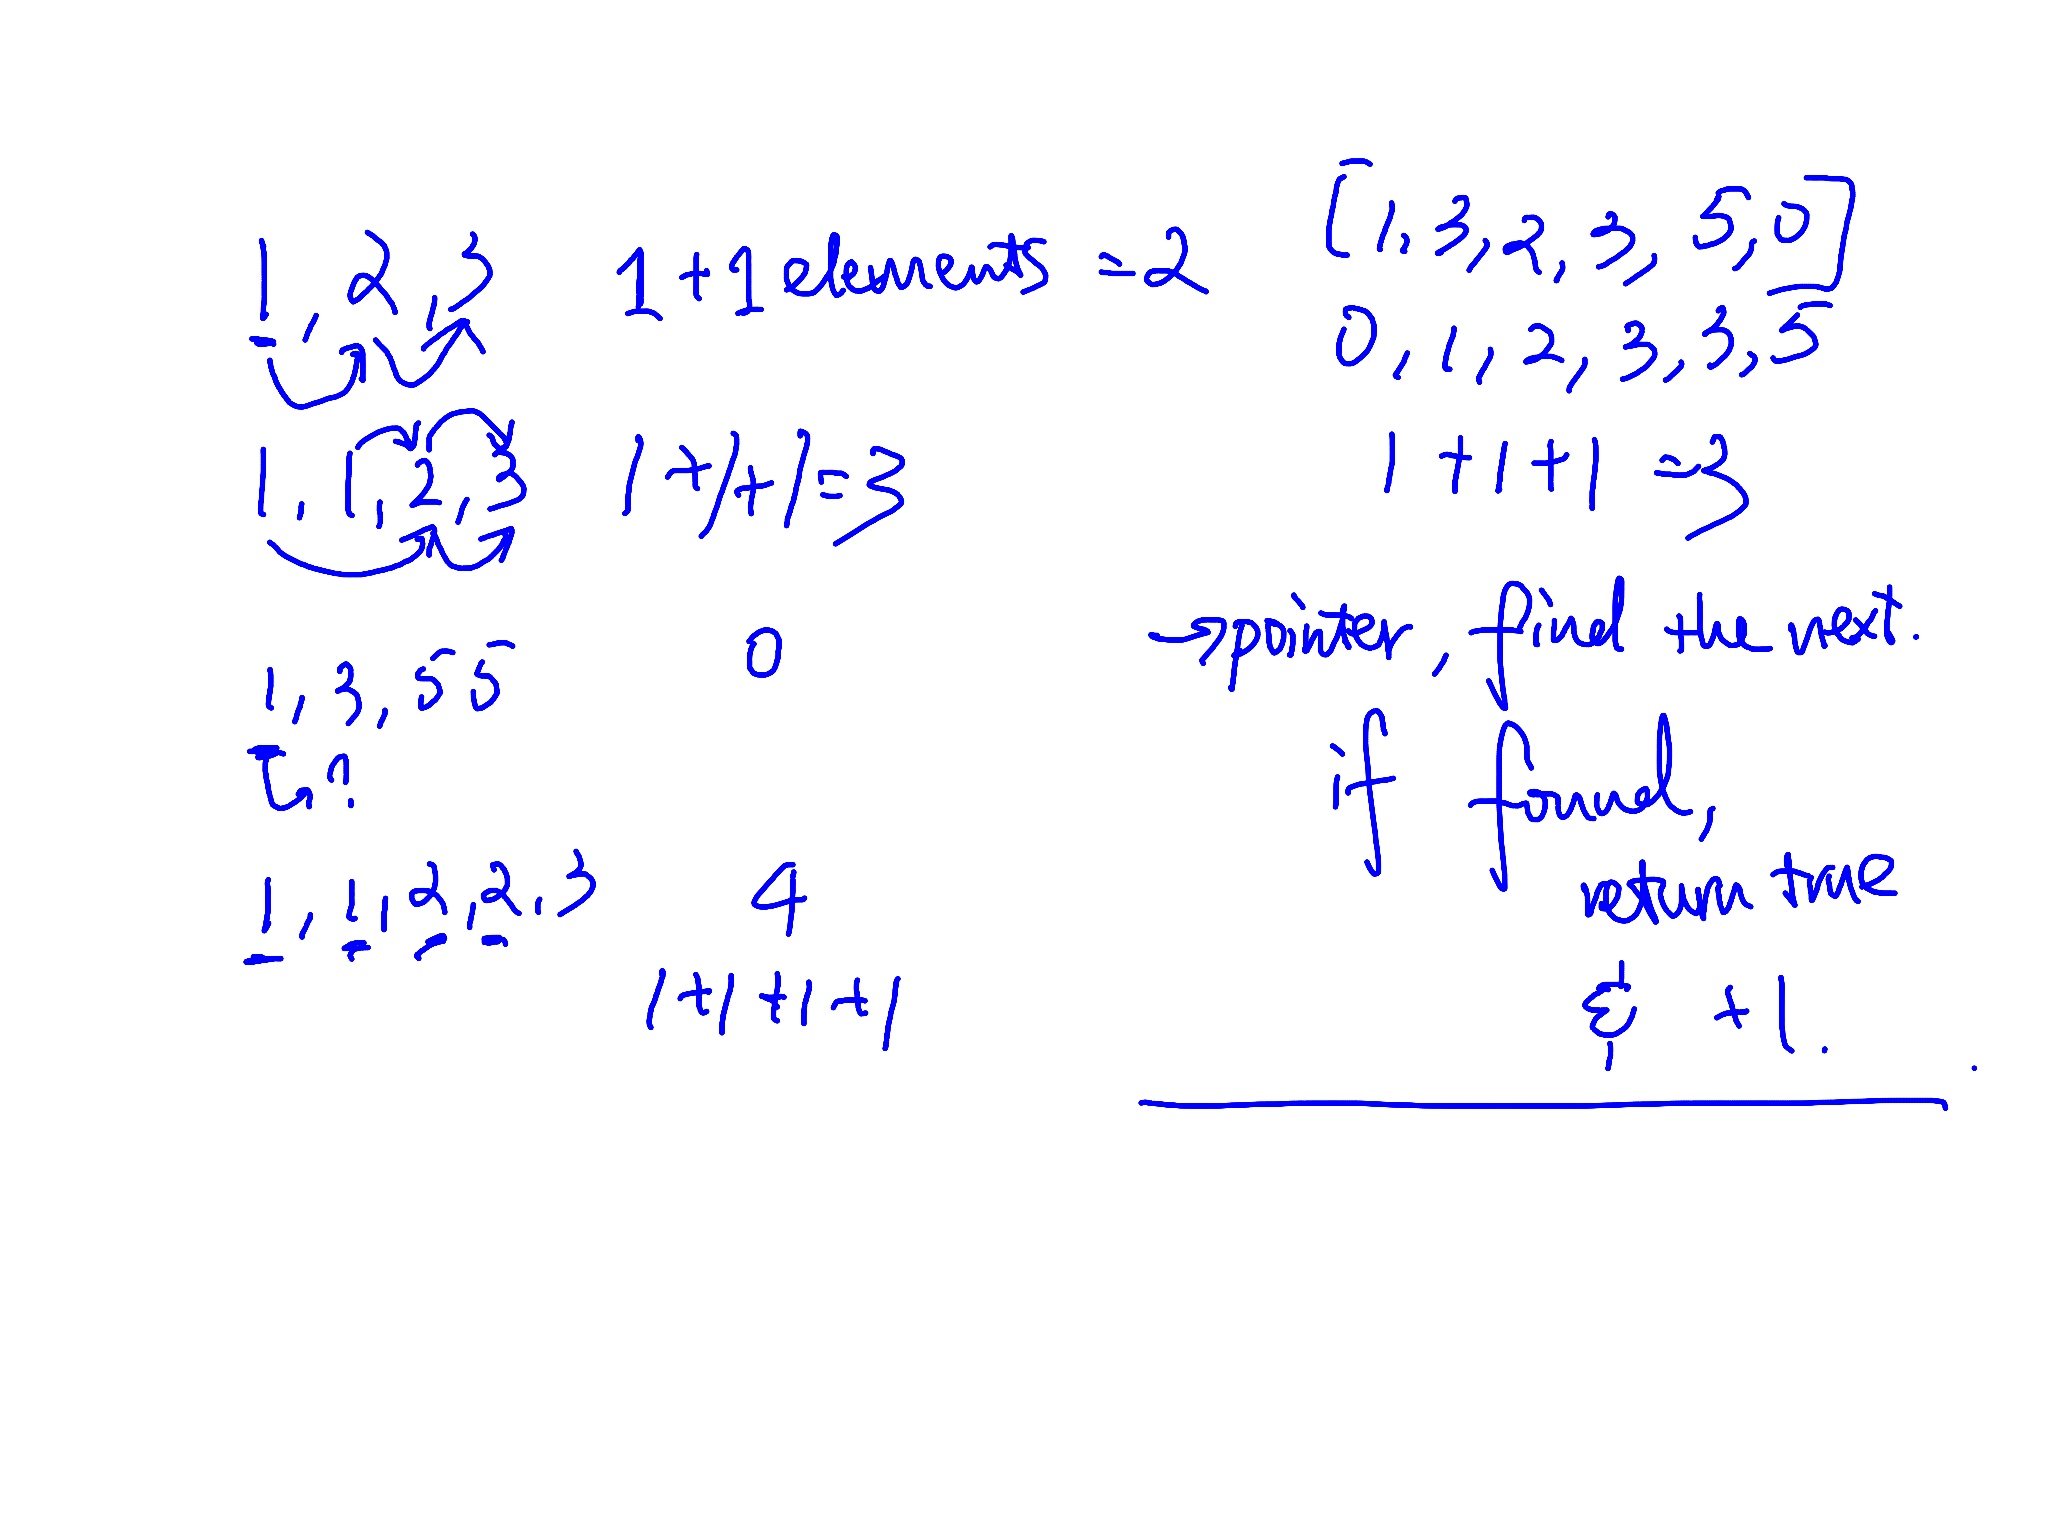 1, 2, 3 1 + 1 elements = 2
1, 1, 2, 3 1 + 1 + 1 = 3
1, 3, 5 5 0
?
1, 1, 2, 2, 3 4
1 + 1 + 1 + 1
[1, 3, 2, 3, 5, 0]
0, 1, 2, 3, 3, 5
1 + 1 + 1 = 3
→ pointer, find the next.
if found,
return true
& + 1.